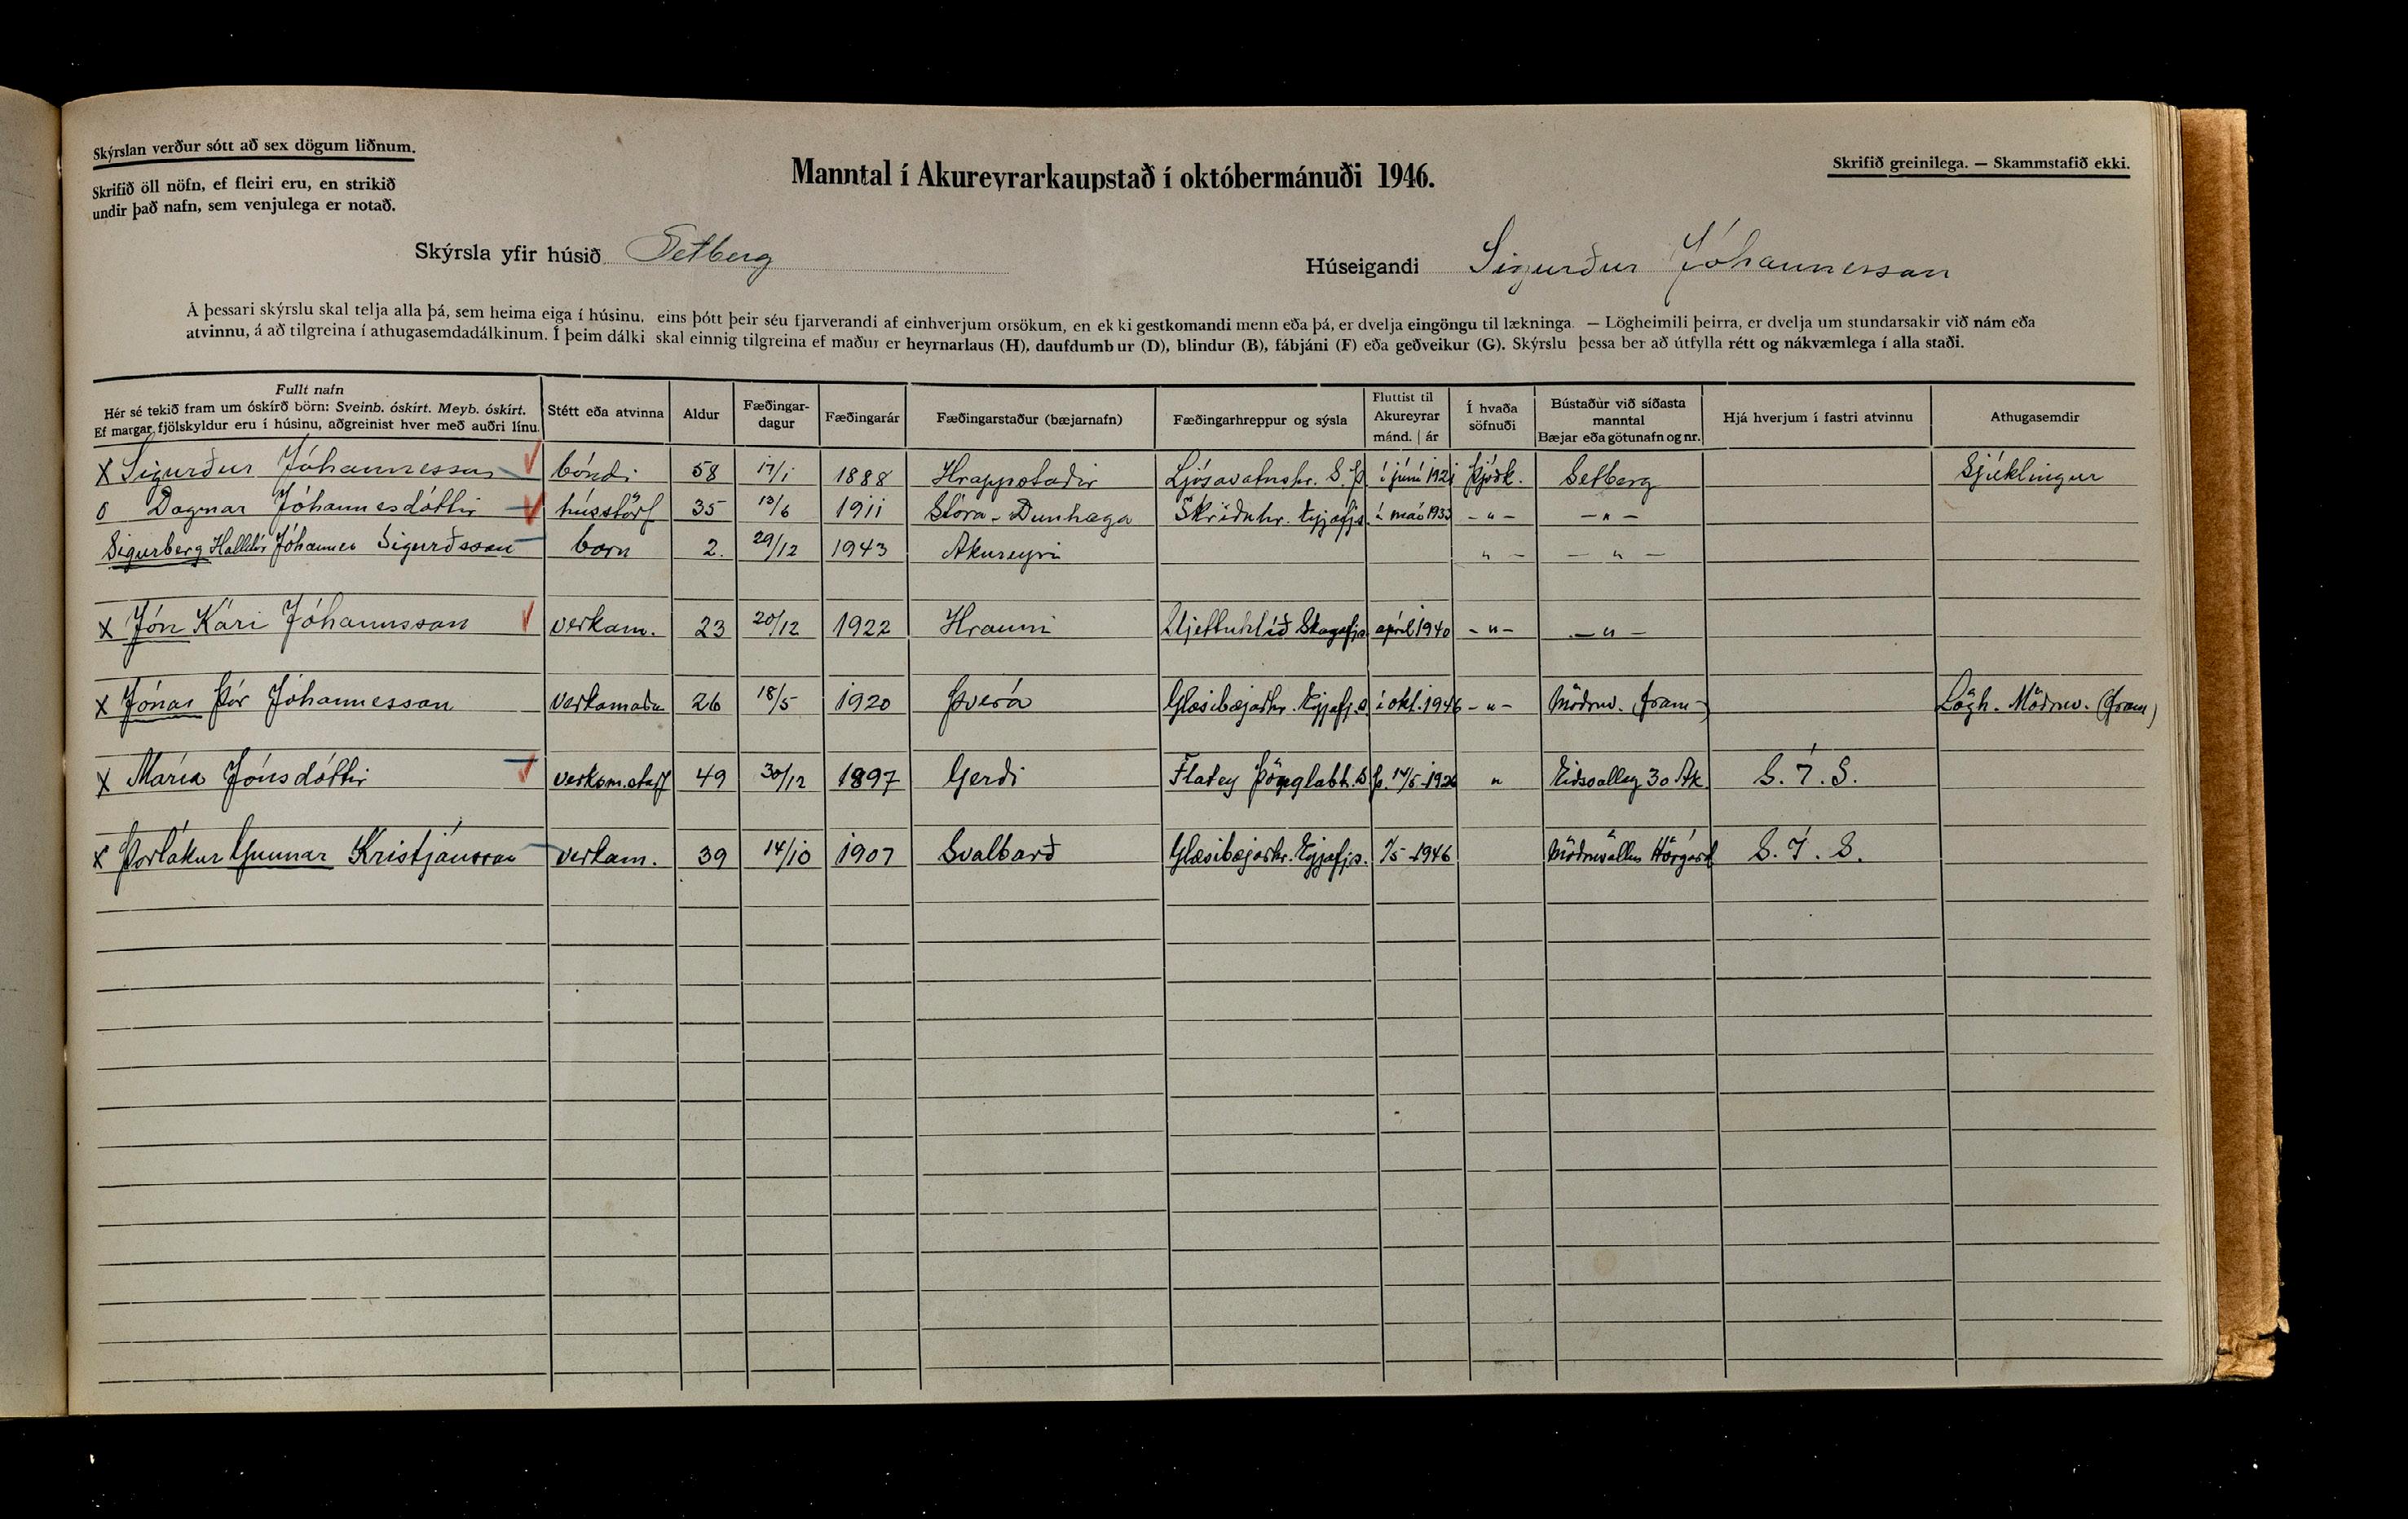 Skýrslan verður sótt að sex dögum liðnum.
Skrifið öll nöfn, ef fleiri eru, en strikið
undir það nafn, sem venjulega er notað.
Manntal í Akureyrarkaupstað í októbermánuði 1946.
Skrifið greinilega. — Skammstafið ekki.
Skýrsla yfir húsið Setberg
Húseigandi Sigurður Jóhannesson
Á þessari skýrslu skal telja alla þá, sem heima eiga í húsinu, eins þótt þeir séu fjarverandi af einhverjum orsökum, en ekki gestkomandi menn eða þá, er dvelja eingöngu til lækninga. — Lögheimili þeirra, er dvelja um stundarsakir við nám eða
atvinnu, á að tilgreina í athugasemdadálkinum. Í þeim dálki skal einnig tilgreina ef maður er heyrnarlaus (H), daufdumbur (D), blindur (B), fábjáni (F) eða geðveikur (G). Skýrslu þessa ber að útfylla rétt og nákvæmlega í alla staði.
Fullt nafn
Hér sé tekið fram um óskírð börn: Sveinb. óskírt. Meyb. óskírt.
Ef margar fjölskyldur eru í húsinu, aðgreinist hver með auðri línu.
Stétt eða atvinna
Aldur
Fæðingar-
dagur
Fæðingarár
Fæðingarstaður (bæjarnafn)
Fæðingarhreppur og sýsla
Fluttist til
Akureyrar
mánd. | ár
Í hvaða
söfnuði
Bústaður við síðasta
manntal
Bæjar eða götunafn og nr.
Hjá hverjum í fastri atvinnu
Athugasemdir
x Sigurður Jóhannesson bóndi 58 17/1 1888 Hrappstaðir Ljósavatnshr. S. Þ. í júní 1921 Þjóðk. Setberg Sjúklingur
o Dagmar Jóhannesdóttir hússtörf 35 13/6 1911 Stóra-Dunhaga Skriðuhr. Eyjafjs. í maí 1933 -"- -"-
Sigurberg Halldór Jóhannes Sigurðsson barn 2. 29/12 1943 Akureyri " - - " -
x Jón Kári Jóhannsson verkam. 23 20/12 1922 Hrauni Sljettuhlíð Skagafjs. apríl 1940 -"- -"-
x Jónas Þór Jóhannesson verkamaðu 26 18/5 1920 Þverá Glæsibæjarhr. Eyjafj.s. í okt. 1946 -"- Möðruv. fram- Lögh. Möðruv. (fram)
x María Jónsdóttir verkam.starf 49 30/12 1897 Gerði Flatey S. Þ. 14/5-1926 " Eiðsvallag 30 Ak. S.Í.S.
x Þorlákur Gunnar Kristjánsson verkam. 39 14/10 1907 Svalbarð Glæsibæjarhr. Eyjafjs. 1/5-1946 Möðruvöllum Hörgárd S.Í.S.